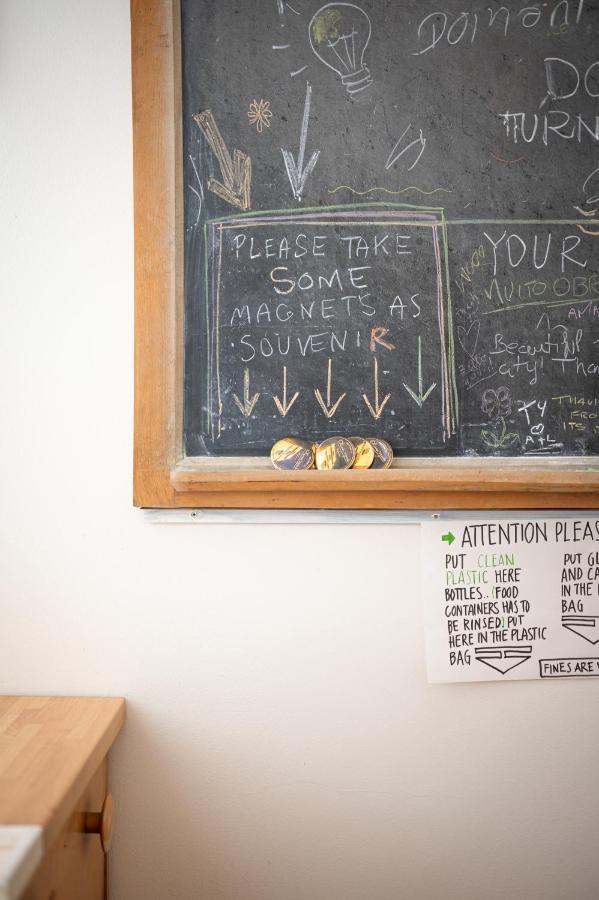 DO
TURN
PLEASE TAKE
SOME
MAGNETS AS
SOUVENIR
YOUR
MUITO OBR
Beautiful
city! Than
TY
A+L
THAN
FRO
ITS
ATTENTION PLEAS
PUT CLEAN
PLASTIC HERE
BOTTLES.. (FOOD
CONTAINERS HAS TO
BE RINSED) PUT
HERE IN THE PLASTIC
BAG
PUT GL
AND CA
IN THE
BAG
FINES ARE